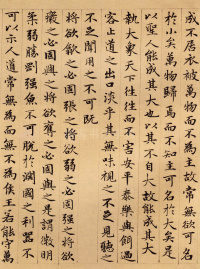 成不居衣被萬物不為主故常無欲可名
於小矣萬物歸焉而不知主可名於大矣是
以聖人能成其大也以其不自大故能成其大
執大象天下往往而不害安平泰樂與餌過
客止道之出口淡乎其無味視之不足見聽之
不足聞用之不可既
將欲歙之必固張之將欲弱之必固強之將欲
廢之必固興之將欲奪之必固與之是謂微明
柔弱勝剛強魚不可脫於淵國之利器不
可以示人道常無為而無不為侯王若能守萬